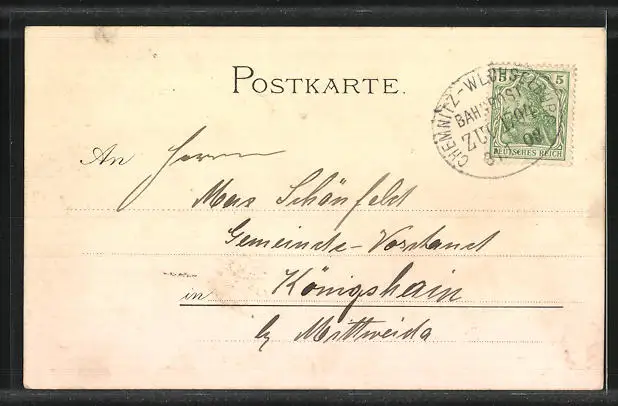 POSTKARTE.
CHEMNITZ - WECHSELBURG
BAHNPOST
ZUG
5
DEUTSCHES REICH
An Herrn
Max Schönfeld
Gemeinde-Vorstand
in Königshain
by Mittweida